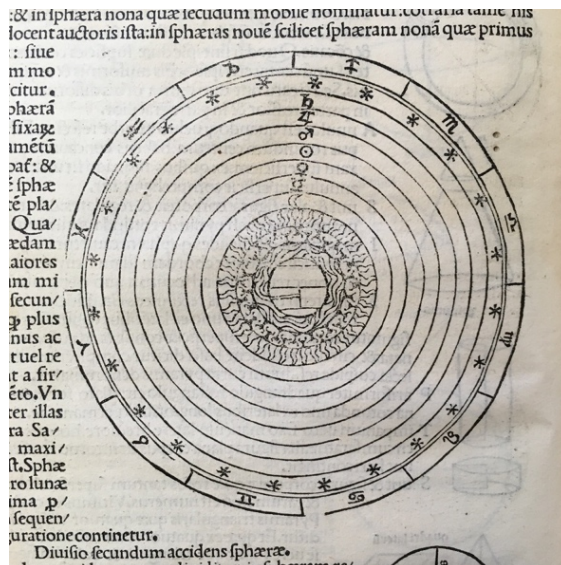 : & in sphæra nona quæ secundum mobile nominatur: cotraria tamē his
docent auctoris ista: in sphæras nouē scilicet sphæram nonā quæ primus
: siue
m mo
icitur.
phærā
fixaꝙ
umētū
paſ: &
ē sphæ
ē pla/
Qua/
ædam
aiores
um mi
secun/
ꝙ plus
nus ac
t uel re
nt a fir/
ēto. Vn
ter illas
ra Sa/
maxi/
st. Sphæ
ro lunæ
ima p̱/
sequen/
guratione continetur.
Diuisio secundum accidens sphæræ.
♄
♃
♂
☉
♐
♏
♎
♍
♌
♋
♊
♉
♈
♓
♑